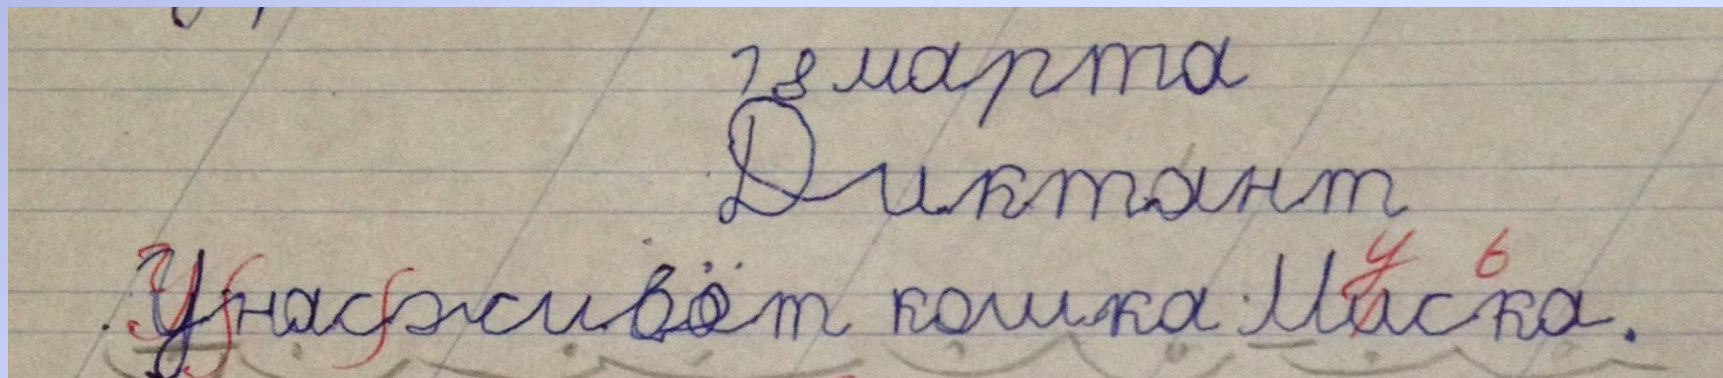 18 марта
Диктант
У нас живёт кошка Маська.